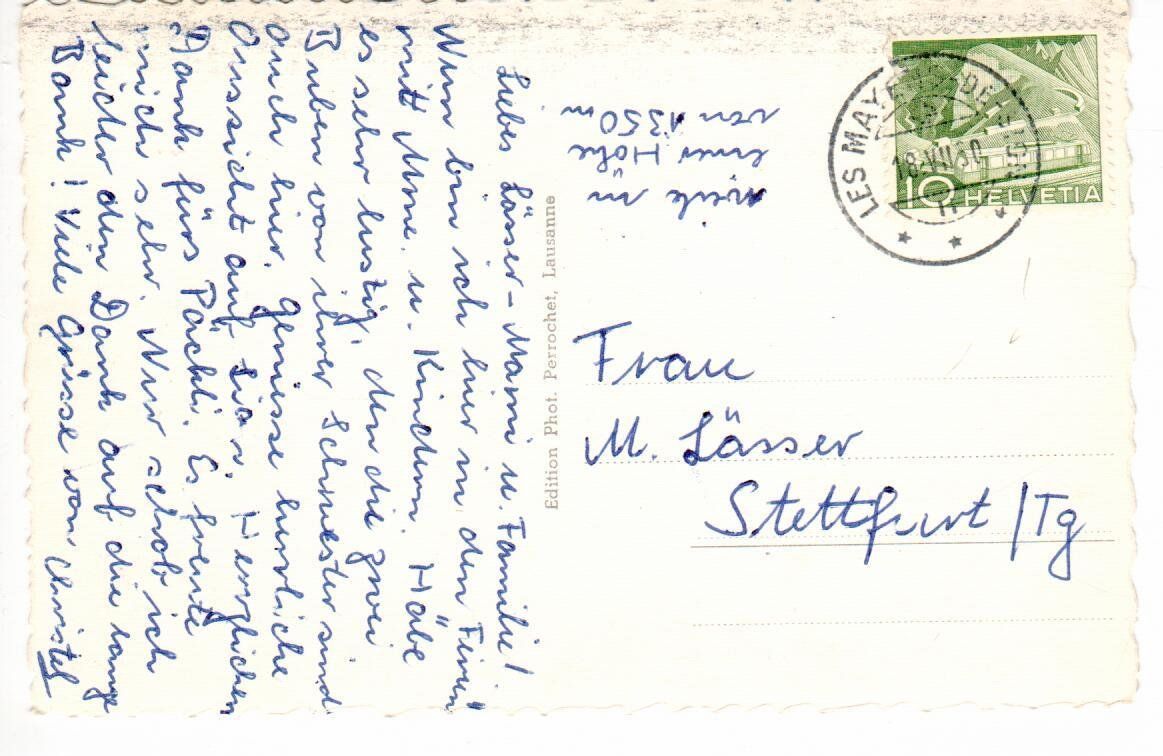 Liebes Lässer-Mami u. Familie!
Nun bin ich hier in den Ferien
mit Mme. u. Kindern. Habe
es sehr lustig, den die zwei
Buben von ihrer Schwester sind
auch hier. Geniesse herrliche
Aussicht auf Sion. Herzlichen
Dank fürs Päckli. Es freute
mich sehr. Nur schob ich
leider den Dank auf die lange
Bank! Viele Grüsse von Christel
in
einer Höhe
von 1350 m
Edition Phot. Perrochet, Lausanne
LES MAYENS DE SION
18.VII.60
10 HELVETIA
Frau
M. Lässer
Stettfurt/Tg